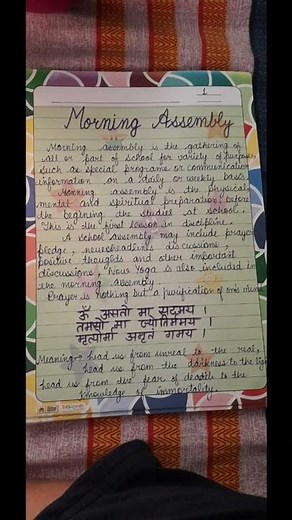 1
Morning Assembly
Morning assembly is the gathering of
all or part of school for variety of purposes
such as special programs or communication
information on a daily or weekly basis.
Morning assembly is the physical,
mental and spiritual preparation before
the beginning the studies at school.
This is the first lesson in discipline.
A school assembly may include prayer
pledge, newsheadlines discussions,
positive thoughts and other important
discussions, Now Yoga is also included in
the morning Assembly.
Prayer is nothing but a purification of one's
ॐ असतो मा सद्गमय ।
तमसो मा ज्योतिर्गमय ।
मृत्योर्मा अमृतं गमय ।
Meaning- lead us from unreal to the real,
lead us from the darkness to the light
lead us from the fear of death to the
knowledge of immortality.